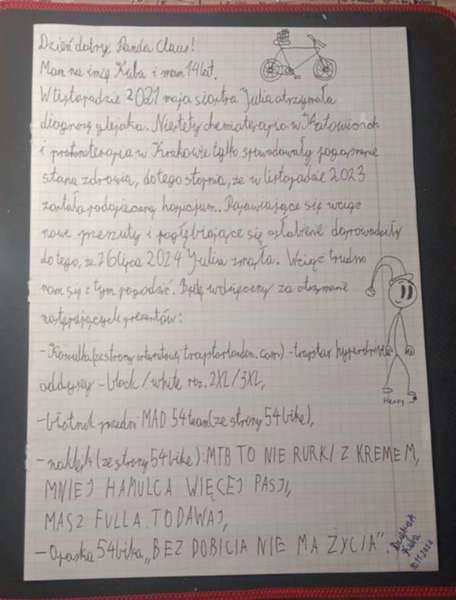 Dzień dobry Panda Claus!
Mam na imię Kuba i mam 14 lat.
W listopadzie 2021 moja siostra Julia otrzymała
diagnozę glejaka. Niestety chemioterapia w Katowicach
i protonoterapia w Krakowie tylko spowodowały pogorszenie
stanu zdrowia, do tego stopnia, że w listopadzie 2023
została podopieczną hospicjum. Pojawiające się wciąż
nowe przerzuty i pogłębiające się osłabienie doprowadziły
do tego, że 26 lipca 2024 Julia zmarła. Wciąż trudno
nam się z tym pogodzić. Będę wdzięczny za otrzymanie
następujących prezentów:
-Koszulka (ze strony internetowej trapstarlondon.com) - trapstar hyperdrive
oddyssey - black/white roz. 2XL/3XL,
-błotnik przedni MAD 54 team (ze strony 54bike),
-naklejki (ze strony 54bike): MTB TO NIE RURKI Z KREMEM,
MNIEJ HAMULCA WIĘCEJ PASJI,
MASZ FULLA TO DAWAJ,
-Opaska 54bike "BEZ DOBICIA NIE MA ŻYCIA"
Henry
Kuba